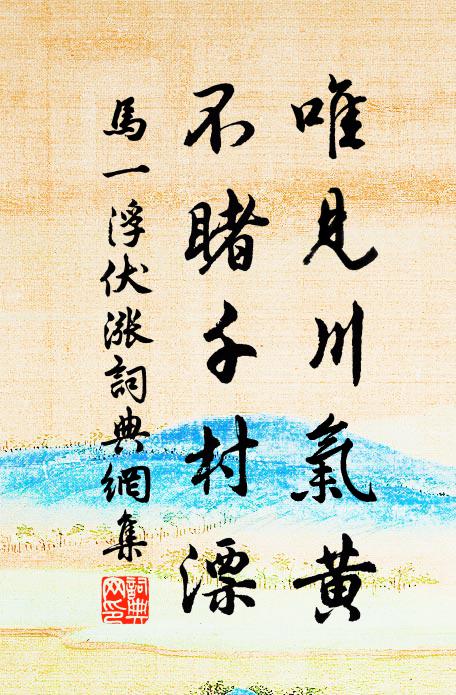 唯見川氣黄
不睹千村漂
馬一浮伏漲詞典網集